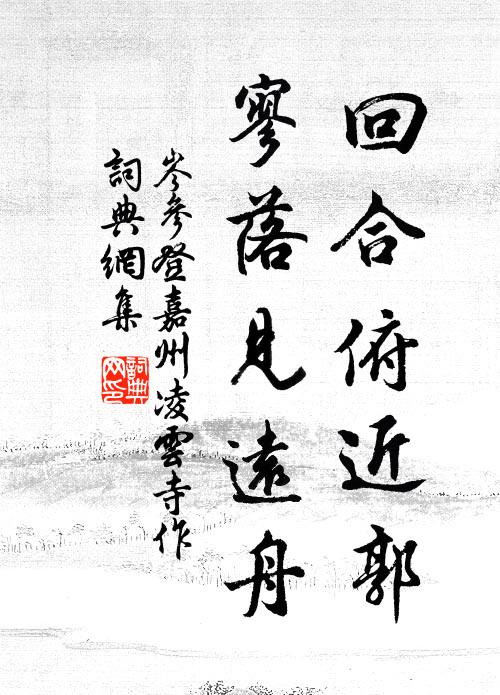 回合俯近郭
寥落見遠舟
岑參登嘉州凌雲寺作
詞典網集
詞典網印